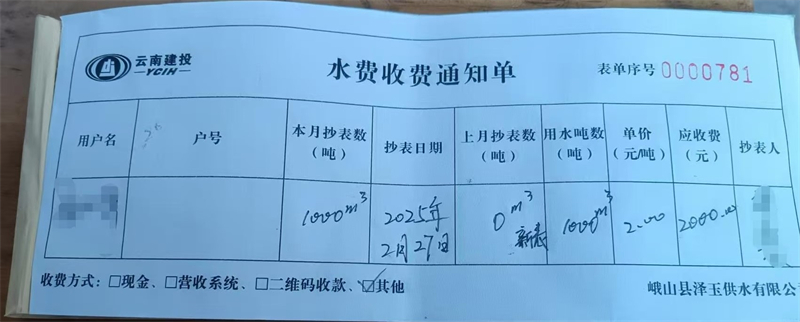 云南建投
YCIH
水费收费通知单
表单序号 0000781
用户名 户号 本月抄表数（吨） 抄表日期 上月抄表数（吨） 用水吨数（吨） 单价（元/吨） 应收费（元） 抄表人
1000m³ 2025年2月27日 0m³ 新表 1000m³ 2.00 2000.00
收费方式：□现金、□营收系统、□二维码收款、☑其他
峨山县泽玉供水有限公